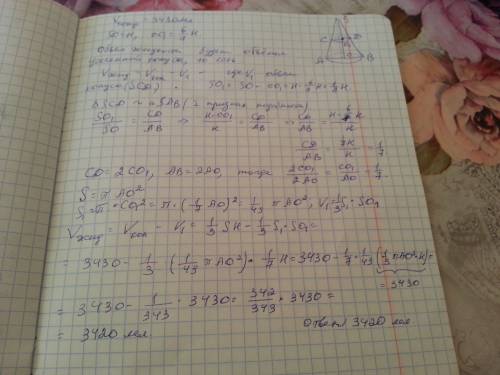 Vконус = 3430 мл
SO = H, OO₁ = 6/7 H
Объем жидкости будет объём
усечённого конуса, то есть
Vжид = Vкон − V₁ − где V₁ объем
конуса (SCD). SO₁ = SO − OO₁ = H − 6/7 H = 1/7 H
ΔSCD ~ ΔSAB (2 признак подобия)
SO₁/SO = CD/AB => (H − OO₁)/H = CD/AB => CD/AB = (H − 6/7 H)/H
CD/AB = (1/7 H)/H = 1/7
CD = 2CO₁, AB = 2AO, тогда 2CO₁/2AO = CO₁/AO = 1/7
S = π AO²
S₁ = π · CO₁² = π · (1/7 AO)² = 1/49 π AO², V₁ = 1/3 S₁ · SO₁
Vжид = Vкон − V₁ = 1/3 SH − 1/3 S₁ · SO₁ =
= 3430 − 1/3 · (1/49 π AO²) · 1/7 H = 3430 − 1/7 · 1/49 (1/3 π AO² · H) =
= 3430
= 3430 − 1/343 · 3430 = 342/343 · 3430 =
= 3420 мл.
Ответ 3420 мл
S
C D
A B